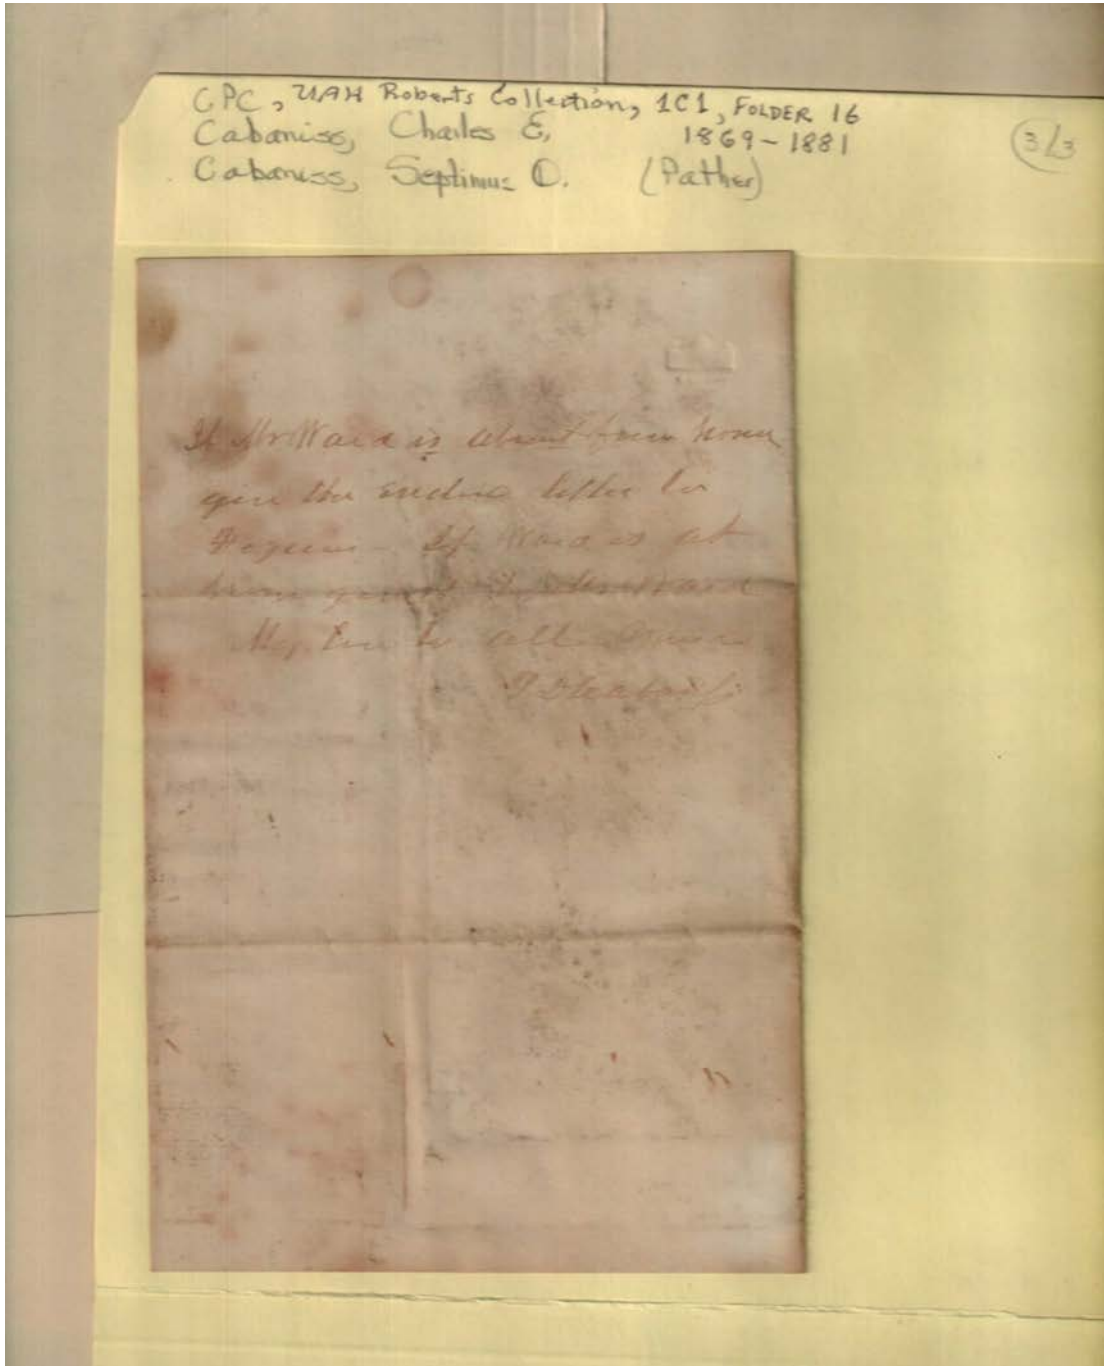 CPC, UAH Roberts Collection, 1C1, FOLDER 16
Cabaniss, Charles E, 1869-1881
3/3
Cabaniss, Septimus D. (Father)
If Mr Ward is absent from home
give the enclose letter to
If Ward is at
home give it to Mr Ward
My love to all